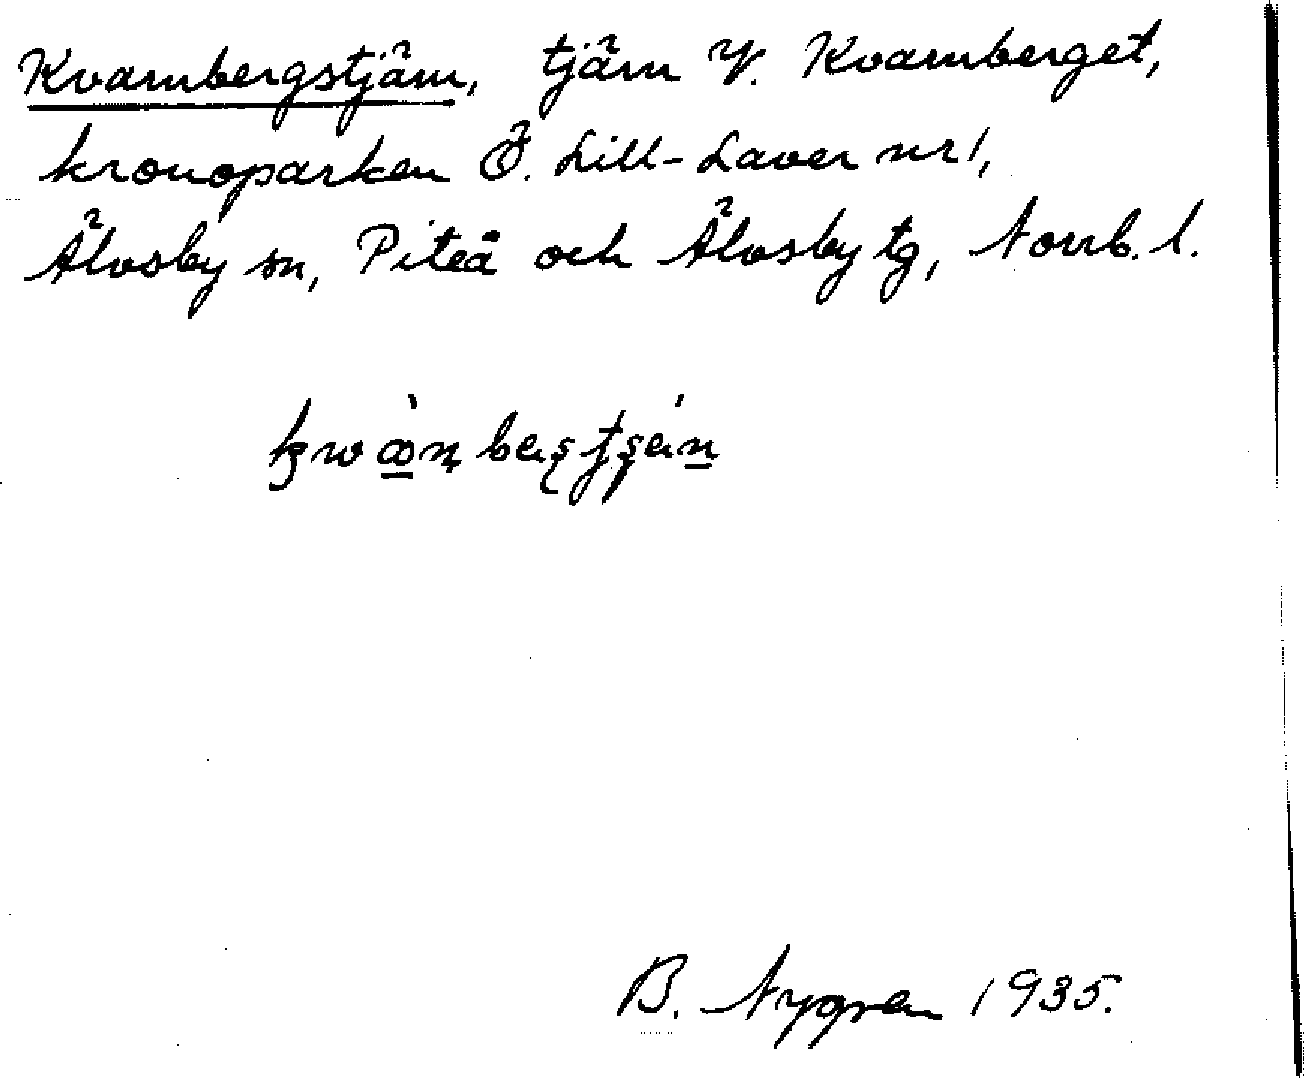 Kvarnbergstjärn, tjärn V. Kvarnberget,
kronoparken Ö. Lill-Laver nr 1,
Älvsby sn, Piteå och Älvsby tg, Norrb. l.
B. Nygren 1935.